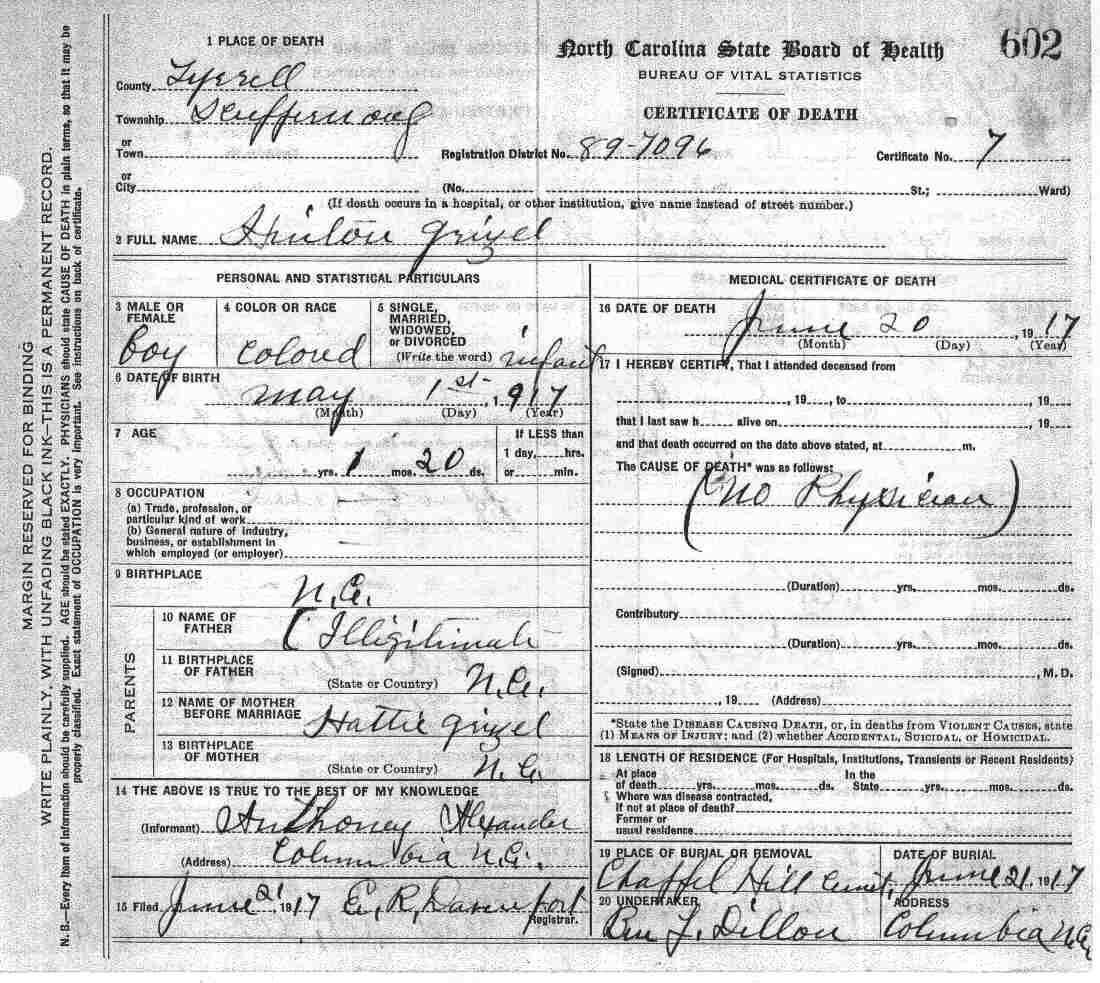 MARGIN RESERVED FOR BINDING
WRITE PLAINLY, WITH UNFADING BLACK INK—THIS IS A PERMANENT RECORD.
N. B.—Every item of information should be carefully supplied. AGE should be stated EXACTLY. PHYSICIANS should state CAUSE OF DEATH in plain terms, so that it may be
properly classified. Exact statement of OCCUPATION is very important. See instructions on back of certificate.
North Carolina State Board of Health 602
BUREAU OF VITAL STATISTICS
CERTIFICATE OF DEATH
1 PLACE OF DEATH
County Tyrrell
Township Scuppernong
or
Town
Registration District No. 89-7096 Certificate No. 7
or
City (No. St.; Ward)
(If death occurs in a hospital, or other institution, give name instead of street number.)
2 FULL NAME Hinton Grizel
PERSONAL AND STATISTICAL PARTICULARS
3 MALE OR FEMALE
boy
4 COLOR OR RACE
Colored
5 SINGLE,
MARRIED,
WIDOWED,
or DIVORCED
(Write the word) infant
6 DATE OF BIRTH
May 1st, 1917
(Month) (Day) (Year)
7 AGE
yrs. 1 mos. 20 ds.
If LESS than
1 day, hrs.
or min.
8 OCCUPATION
(a) Trade, profession, or
particular kind of work
(b) General nature of industry,
business, or establishment in
which employed (or employer)
9 BIRTHPLACE
N.C.
PARENTS
10 NAME OF
FATHER (Illigitimate
11 BIRTHPLACE
OF FATHER
(State or Country) N.C.
12 NAME OF MOTHER
BEFORE MARRIAGE Hattie Grizel
13 BIRTHPLACE
OF MOTHER
(State or Country) N.C.
14 THE ABOVE IS TRUE TO THE BEST OF MY KNOWLEDGE
(Informant) Anthoney Alexander
(Address) Columbia N.C.
15 Filed June 21 1917 E. R. Davenport
Registrar.
MEDICAL CERTIFICATE OF DEATH
16 DATE OF DEATH
June 20 1917
(Month) (Day) (Year)
17 I HEREBY CERTIFY, That I attended deceased from
, 19 , to , 19
that I last saw h alive on , 19
and that death occurred on the date above stated, at m.
The CAUSE OF DEATH* was as follows:
(No Physician)
(Duration) yrs. mos. ds.
Contributory
(Duration) yrs. mos. ds.
(Signed) , M. D.
, 19 (Address)
*State the DISEASE CAUSING DEATH, or, in deaths from VIOLENT CAUSES, state
(1) MEANS OF INJURY; and (2) whether ACCIDENTAL, SUICIDAL, or HOMICIDAL.
18 LENGTH OF RESIDENCE (For Hospitals, Institutions, Transients or Recent Residents)
At place In the
of death yrs. mos. ds. State yrs. mos. ds.
Where was disease contracted,
If not at place of death?
Former or
usual residence
19 PLACE OF BURIAL OR REMOVAL
Chappel Hill Cemt,
DATE OF BURIAL
June 21, 1917
20 UNDERTAKER
Ben J. Dillon
ADDRESS
Columbia N.C.